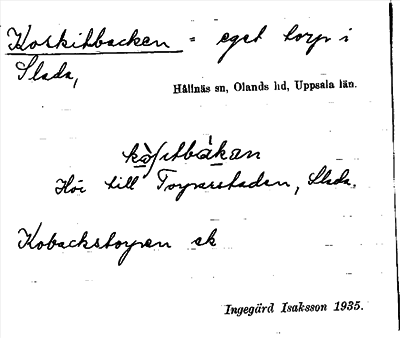 Koskitbacken = eget torp i
Slada,
Hållnäs sn, Olands hd, Uppsala län.
kò̀ʃitbàkan
Hör till Torparstaden, Slada.
Kobackstorpen sk
Ingegärd Isaksson 1935.